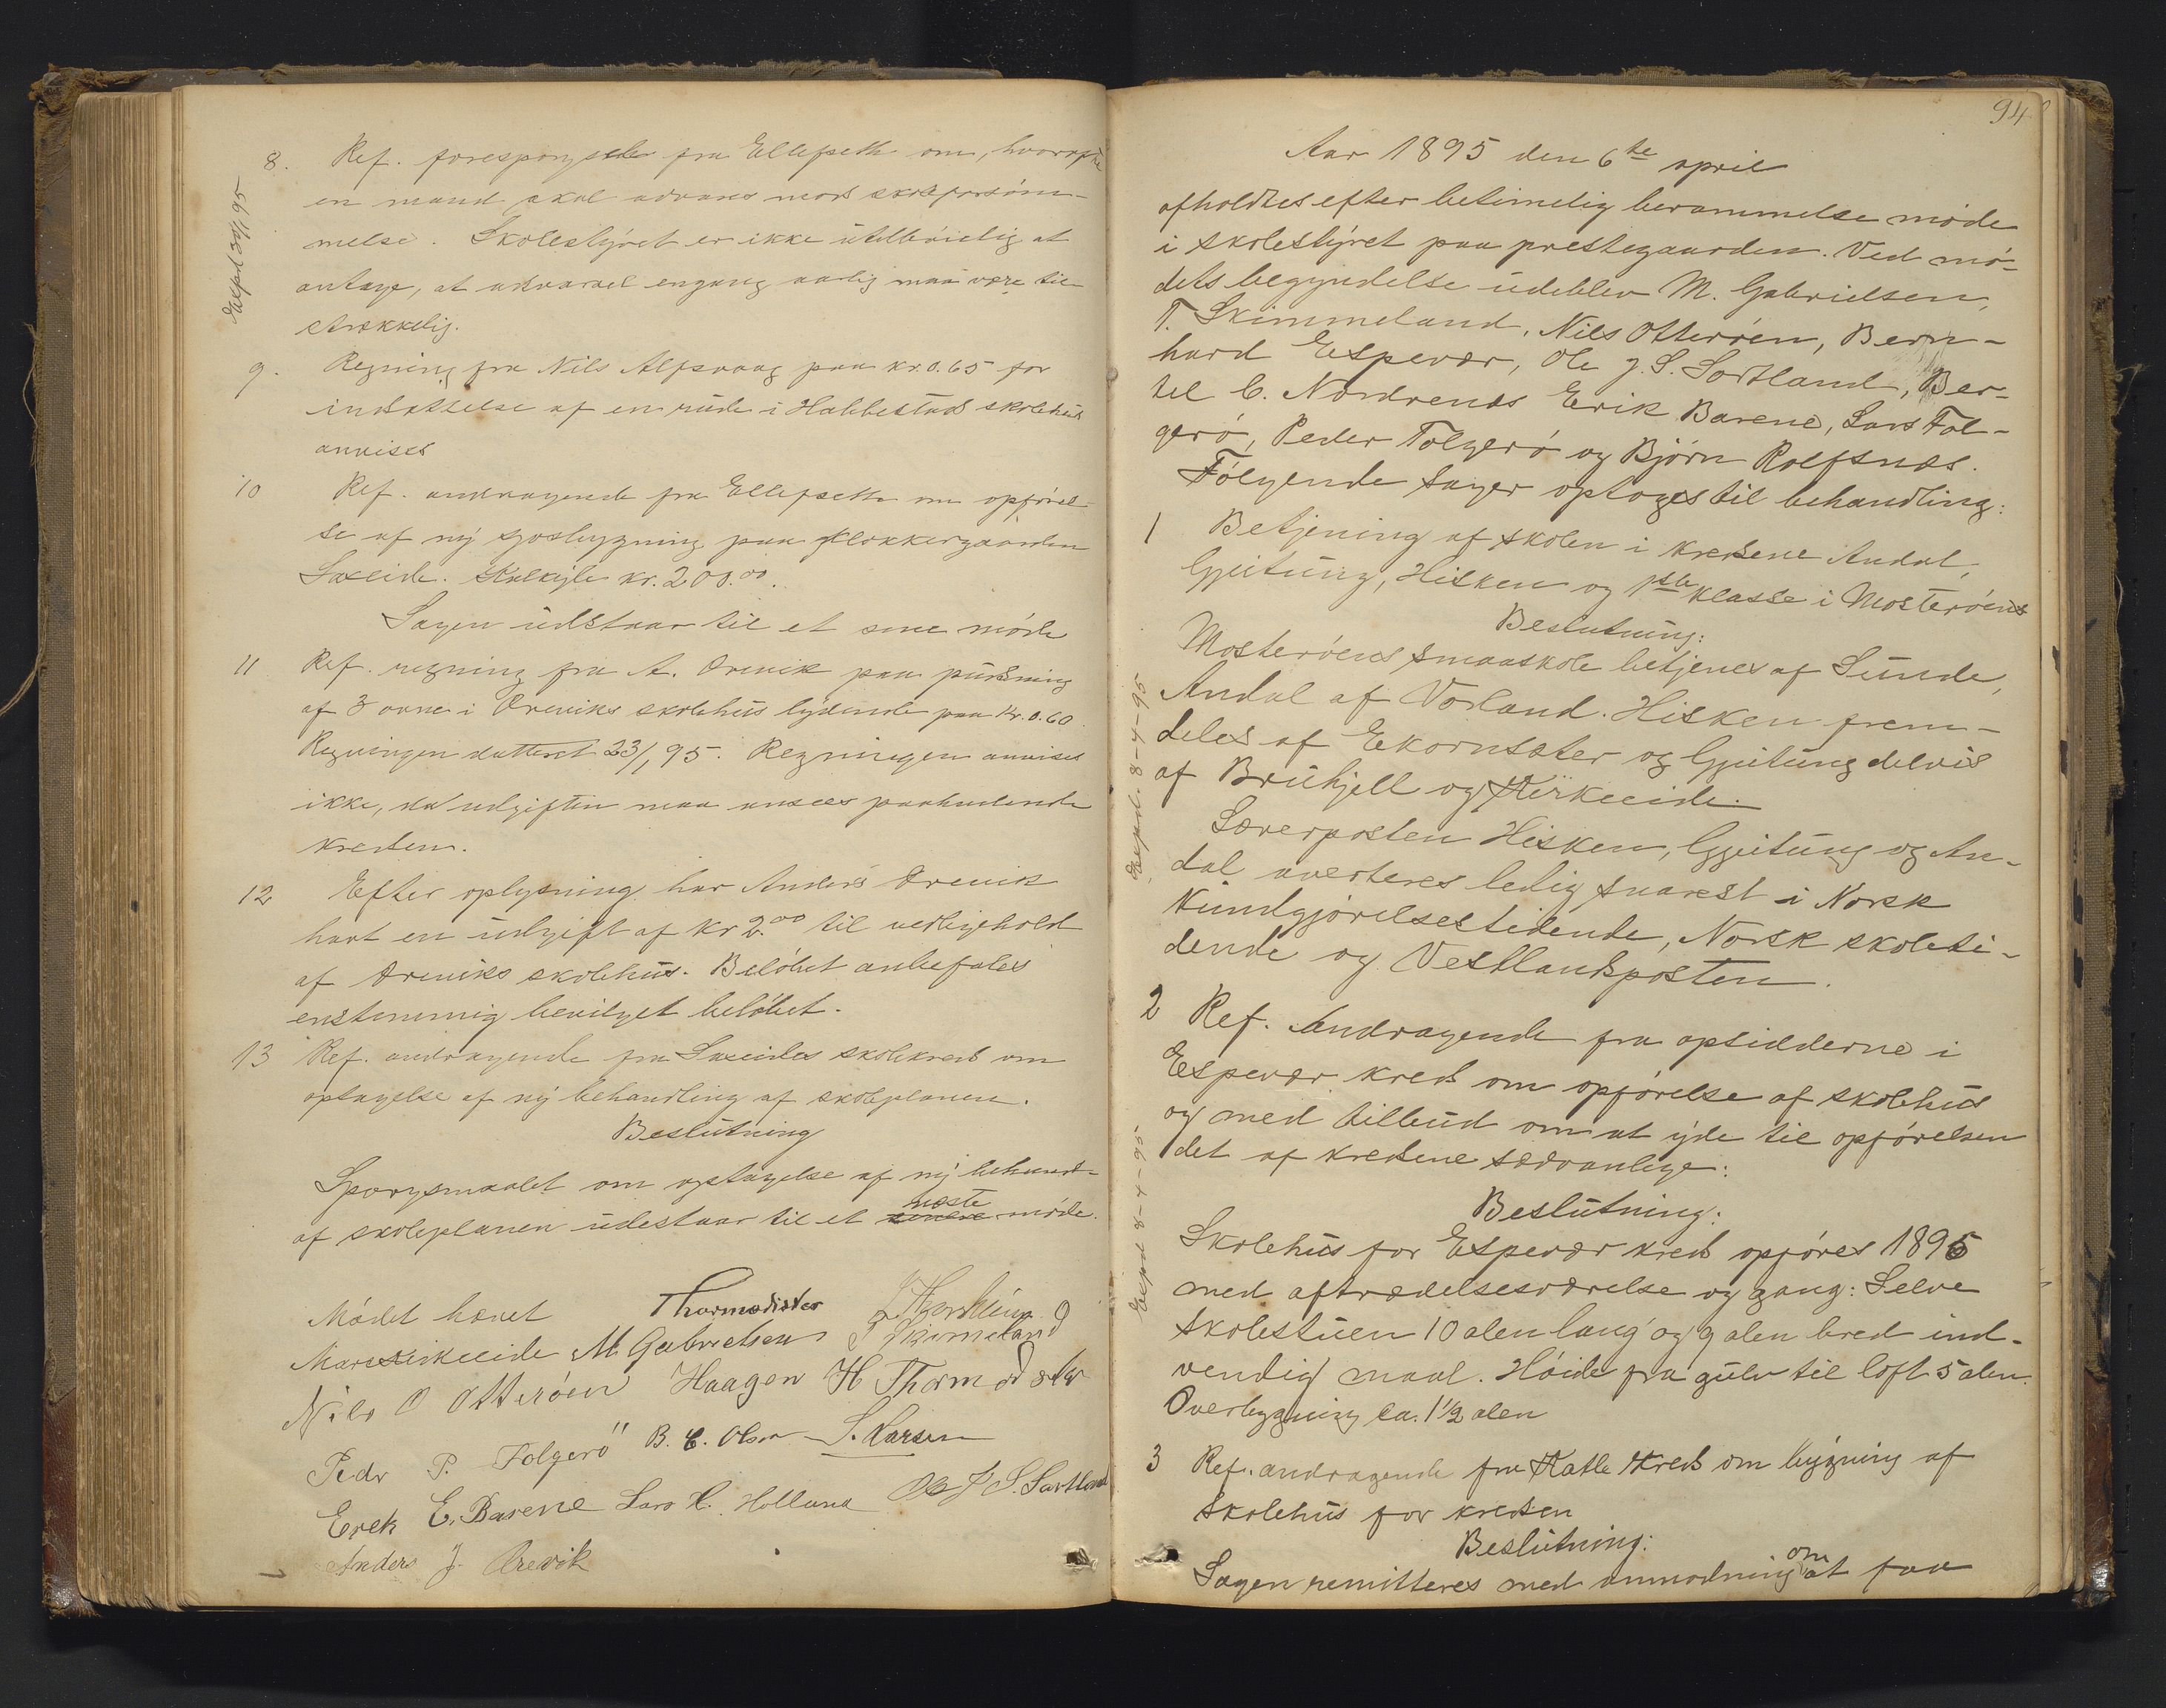 8. Ref. forespørgsel fra Ellefseth om, hvorofte
en mand skal advares mod skoleforsøm-
melse. Skolestyret er ikke utilbøielig at
antage, at advarsel engang aarlig maa være til-
strækkelig.
Exped 30/1 95
9. Regning fra Nils Alfsvaag paa kr. 0.65 for
indsættelse af en rude i Habbestad skolehus
anvises
10 Ref. andragende fra Ellefseth om opførel-
se af ny bygning paa Klokkergaarden
Sæeide. kr. 200.00.
Sagen udstaar til et møde
11 Ref. regning fra A. Ørevik paa pudsning
af 3 ovne i Øreviks skolehus lydende paa Kr. 0.60.
Regningen datteret 23/1 95. Regningen anvises
ikke, da udgiften maa ansees paahvilende
kredsen.
12 Efter oplysning har Anders Ørevik
havt en udgift af Kr 2.00 til vedligehold
af Øreviks skolehus. Beløbet anbefales
enstemmig bevilget beløbet.
13 Ref. andragende fra Sæeides skolekreds om
optagelse af ny behandling af skoleplanen.
Beslutning
Spørgsmaalet om optagelse af ny behandl-
næste
af skoleplanen udestaar til et senere møde.
Mødet hævet Thormodsæter
M Gabrielsen T Skimmeland
Nils O Otterøen Haagen H Thormodsæter
Pedr P. Folgerö B. E. Olsen L. Larsen
Erek E. Barene Lars H. Holland Ole J S. Sortland
Anders J. Ørevik
94
Aar 1895 den 6te april
afholdtes efter betimelig berammelse møde
i skolestyret paa prestegaarden. Ved mø-
dets begyndelse udeblev M. Gabrielsen,
T. Skimmeland, Nils Otterøen, Bern-
hard Espevær, Ole J. S. Sortland, Ber-
tel C. Nordrenæs Erik Barene, Lars Fol-
gerö, Peder Folgerö og Bjørn Rolfsnæs.
Følgende sager optoges til behandling:
1 Betjening af skolen i kredsene Andal,
Gjeitung, Hisken og 1ste klasse i Mosterøens
Beslutning:
Mosterøens smaaskole betjenes af Sunde,
Andal af Vorland. Hisken frem-
deles af Ekornsæter og Gjeitung delvis
af Bruhjell og Kirkeeide.
Lærerposten Hisken, Gjeitung og An-
dal averteres ledig snarest i Norsk
Kundgjørelsestidende, Norsk skoleti-
dende og Vestlandsposten.
Exped. 8-4-95
2 Ref. Andragende fra opsidderne i
Espevær kreds om opførelse af skolehus
og med tilbud om at yde til opførelsen
det af kredsene sædvanlige:
Beslutning:
Skolehus for Espevær kreds opføres 1896
med aftrædelsesværelse og gang: Selve
skolestuen 10 alen lang og 9 alen bred ind-
vendig maal. Høide fra gulv til loft 5 alen.
Overbygning ca. 1 1/2 alen
Exped 8-4-95
3 Ref. andragende fra Katle Kreds om bygning af
skolehus for kredsen
Beslutning:
om
Sagen remitteres med anmodning at faa